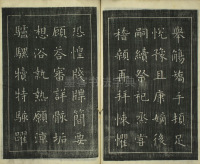 舉觴矯手頓足
悅豫且康嫡後
嗣續祭祀蒸嘗
稽顙再拜悚懼
恐惶牋牒簡要
顧答審詳骸垢
想浴執熱願涼
驢騾犢特駭躍